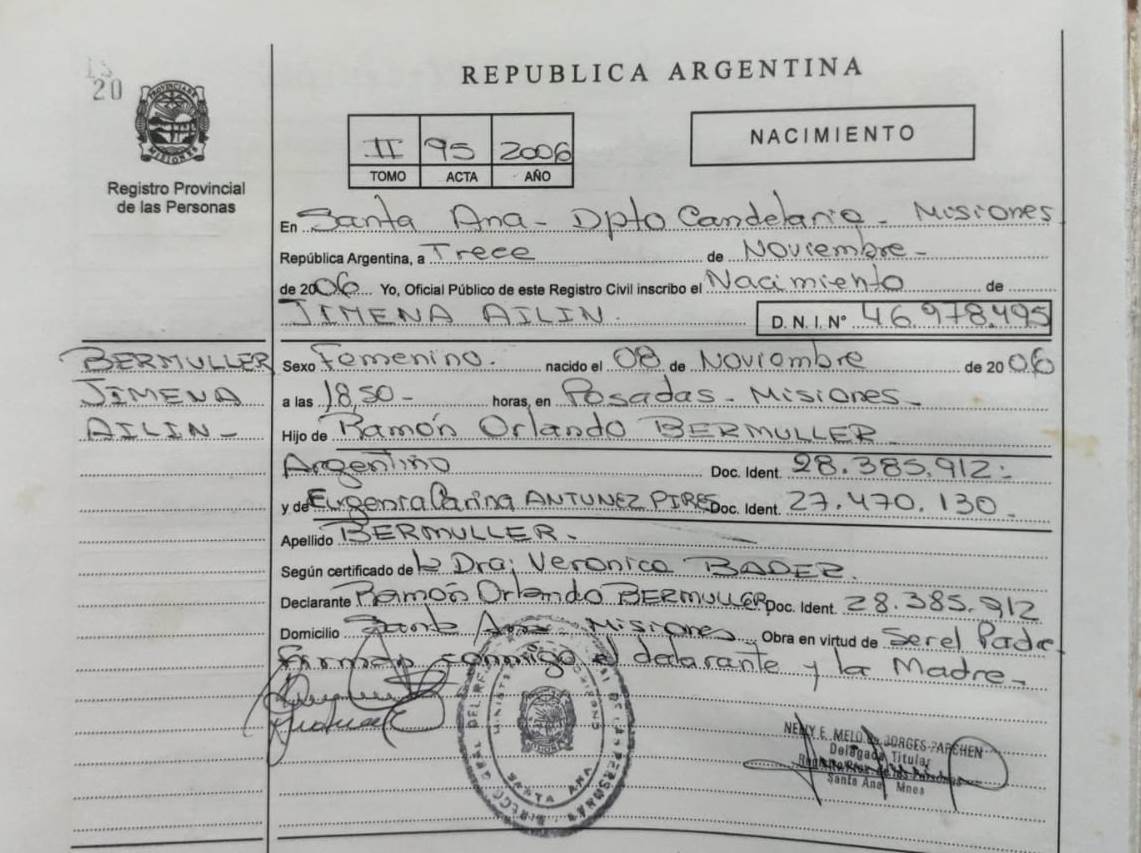 20
REPUBLICA ARGENTINA
PROVINCIA DE
MISIONES
Registro Provincial
de las Personas
II 95 2006
TOMO ACTA AÑO
NACIMIENTO
En Santa Ana - Dpto Candelaria - Misiones
República Argentina, a Trece de Noviembre -
de 2006 Yo, Oficial Público de este Registro Civil inscribo el Nacimiento de
JIMENA AILIN. D. N. I. N° 46.978.495
BERMULLER
JIMENA
AILIN -
Sexo Femenino. nacido el 08 de Noviembre de 2006
a las 18,50 - horas, en Posadas - Misiones -
Hijo de Ramón Orlando BERMULLER -
Argentino Doc. Ident. 28.385.912 -
y de Eugenia Carina ANTUNEZ PIRES Doc. Ident. 27.470.130 -
Apellido BERMULLER -
Según certificado de la Dra; Veronica BADER.
Declarante Ramón Orlando BERMULLER Doc. Ident. 28.385.912
Domicilio Santa Ana - Misiones Obra en virtud de Ser el Padre
Firman conmigo el declarante y la Madre -
SANTA ANA
NELLY E. MELO de JORGES
Delegada Titular
Santa Ana Mnes